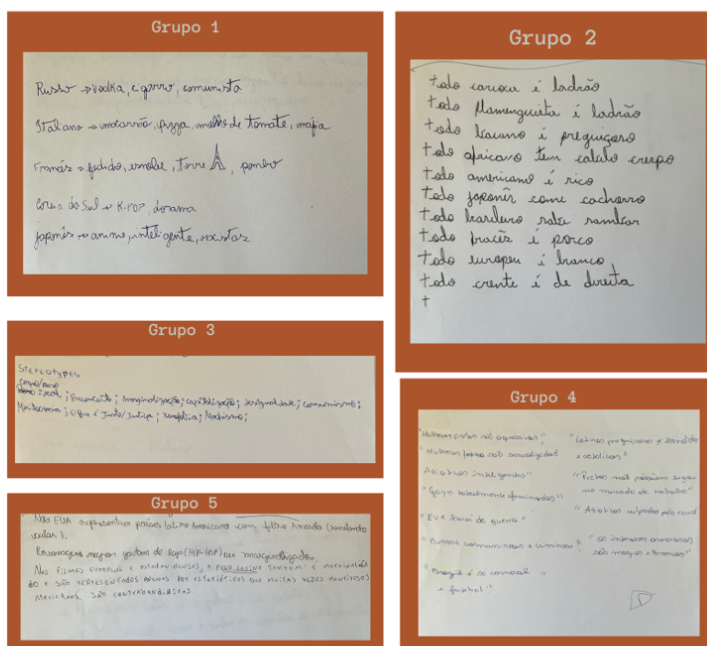 Grupo 1
Russo → vodka, cigarro, comunista
Italiano → macarrão, pizza, molho de tomate, máfia
Francês → fedido, esnobe, torre, pombo
Coreia do Sul → K-POP, dorama
japonês → anime, inteligente, racistas
Grupo 2
todo carioca é ladrão
todo flamenguista é ladrão
todo baiano é preguiçoso
todo africano tem cabelo crespo
todo americano é rico
todo japonês come cachorro
todo brasileiro sabe sambar
todo francês é porco
todo europeu é branco
todo crente é de direita
t
Grupo 3
Stereotypes
social; Preconceito; Marginalização; capitalização; desigualdade; consumismo;
Meritocracia; O que é Justo/Justiça; xenofobia; Machismo;
Grupo 4
"Mulheres pretas são agressivas";
"mulheres latinas são sexualizadas"
Asiáticos inteligentes"
"Gays totalmente afeminados"
"EUA heroi de guerra"
"Russos comunistas e criminosos"
"Brasil é só carnaval
e futebol"
"Latinos preguiçosos e bandidos
e católicos"
"Pretos não no mercado de trabalho"
"Asiáticos culpados pelo covid"
são magros e brancos"
Grupo 5
Nos EUA representam países Latino Americano com filtro Amarelo
Personagens negros gostam de Rap (HIP-HOP) ou marginalizados.
Nos filmes e estadunidenses, o povo latino também é
do e são representados apenas por estereótipos que muitas vezes
mexicanos são contrabandistas